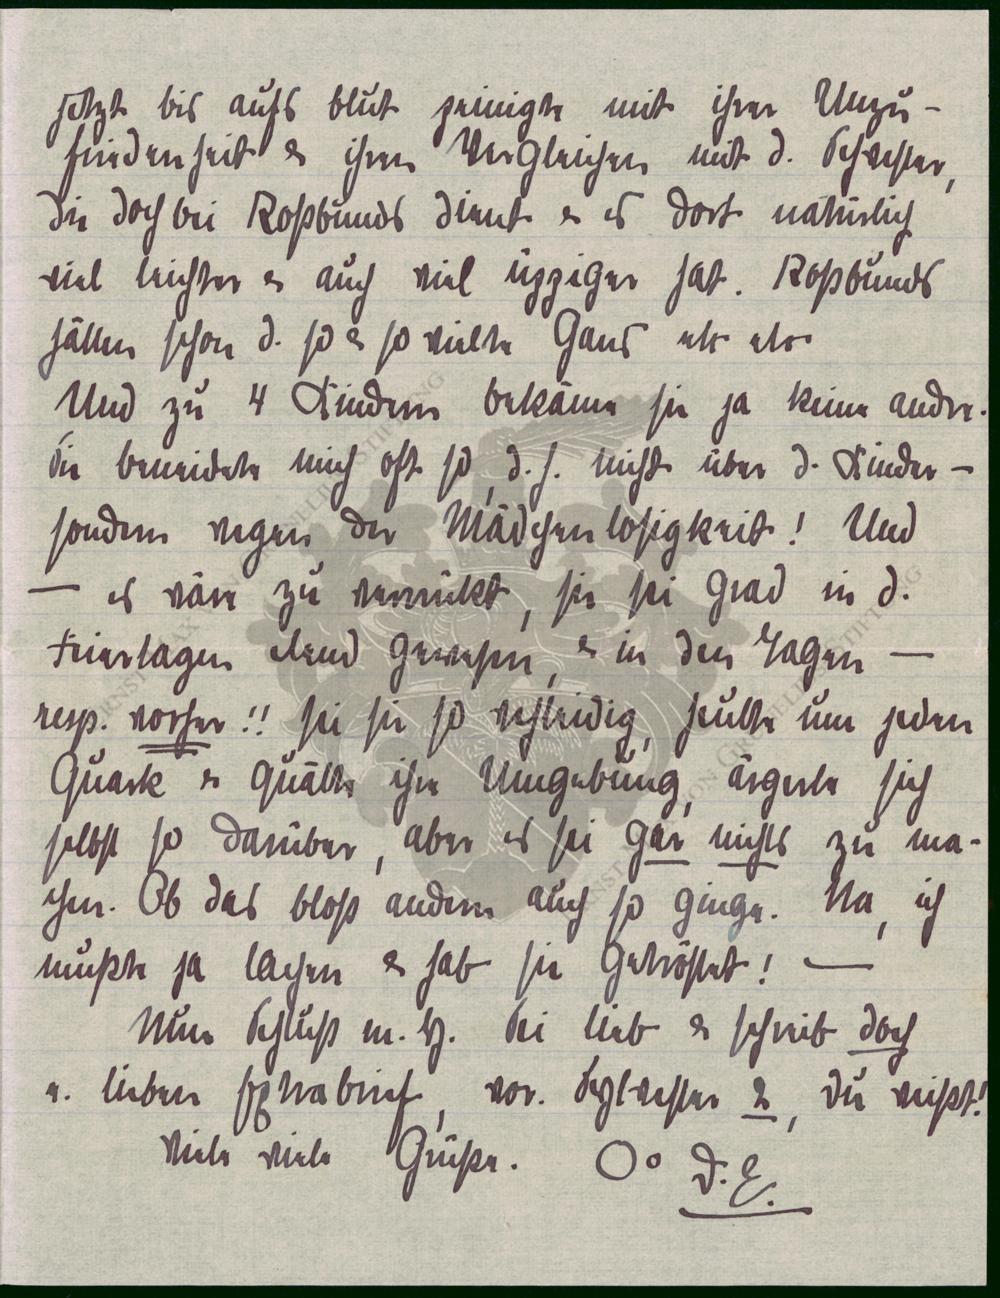 jetzt bis aufs blut peinigte mit ihrer Unzu-
friedenheit & ihren Vergleichen mit d. Schwester,
die doch bei Roßbunds dient & es dort natürlich
viel leichter & auch viel üppiger hat. Roßbunds
hätten schon d. so & so vielte Gans etc etc
Und zu 4 Kindern bekäme sie ja keine andre.
Sie beneidete mich oft so, d.h. nicht über d. Kinder –
sondern wegen der Mädchenlosigkeit! Und
— es wäre zu verrückt, sie sei grad in d.
Feiertagen elend gewesen, & in den Tagen —
resp. vorher!! sei sie so wehleidig, heulte um jeden
Quark & quälte ihre Umgebung, ärgerte sich
selbst so darüber, aber es sei gar nichts zu ma-
chen. Ob das bloß andern auch so ginge. Na, ich
mußte ja lachen & hab sie getröstet! —
Nun Schluß m. H. Sei lieb & schreib doch
e. lieben brief, vor. Sylvester 2, du weißt!
Viele viele Grüße. O o D. E.